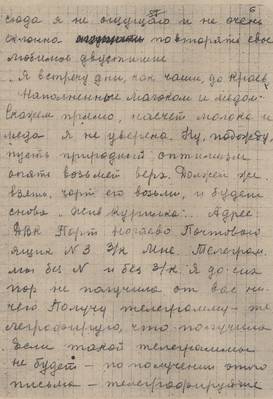 6
сюда я не ощущаю и не очень
склонна повторять свое
любимое двустишие
„Я встречу дни, как чаши, до краев
Наполненные молоком и медом“
Скажем прямо, насчет молока и
меда я не уверена. Ну, подожду,
пусть природный оптимизм
опять возьмет верх. Должен же
взять, черт его возьми, и будет
снова „Жив курилка“. Адрес
ДВК Порт Ногаево Почтовый
ящик N 3 З/к Мне. Телеграм.
мы без N и без З/к. Я до сих
пор не получила от вас ни-
чего Получу телеграмму – те
леграфирую, что получила
Если такой телеграммы
не будет – по получении этого
письма – телеграфируйте